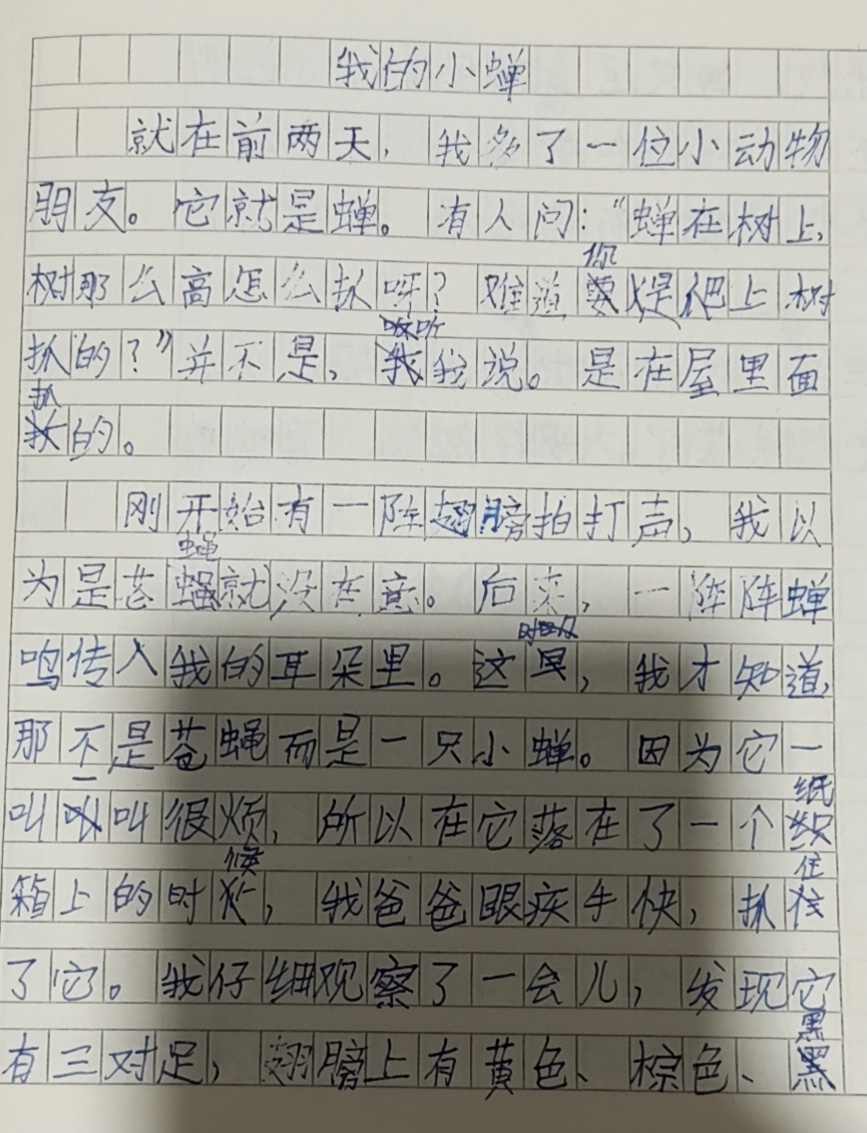 我的小蝉
就在前两天，我多了一位小动物
朋友。它就是蝉。有人问：“蝉在树上，
树那么高怎么抓呀？难道你是爬上树
抓的？”并不是，听我说。是在屋里面
抓的。
刚开始有一阵翅膀拍打声，我以
为是苍蝇就没在意。后来，一阵阵蝉
鸣传入我的耳朵里。这，我才知道，
那不是苍蝇而是一只小蝉。因为它一
叫叫很烦，所以在它落在了一个纸
箱上的时候，我爸爸眼疾手快，抓住
了它。我仔细观察了一会儿，发现它
有三对足，翅膀上有黄色、棕色、黑